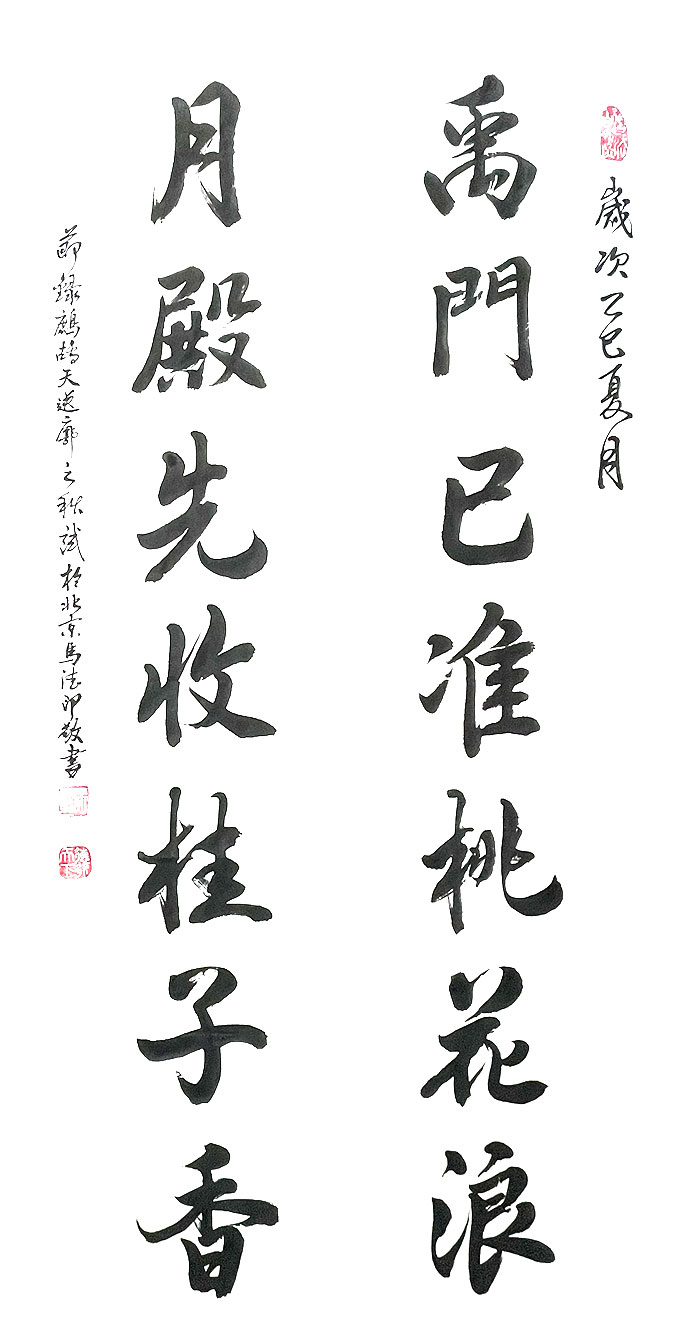 歲次乙巳夏月
禹門已准桃花浪
月殿先收桂子香
節錄鷓鴣天送廓之秋試於北京馬德印敬書